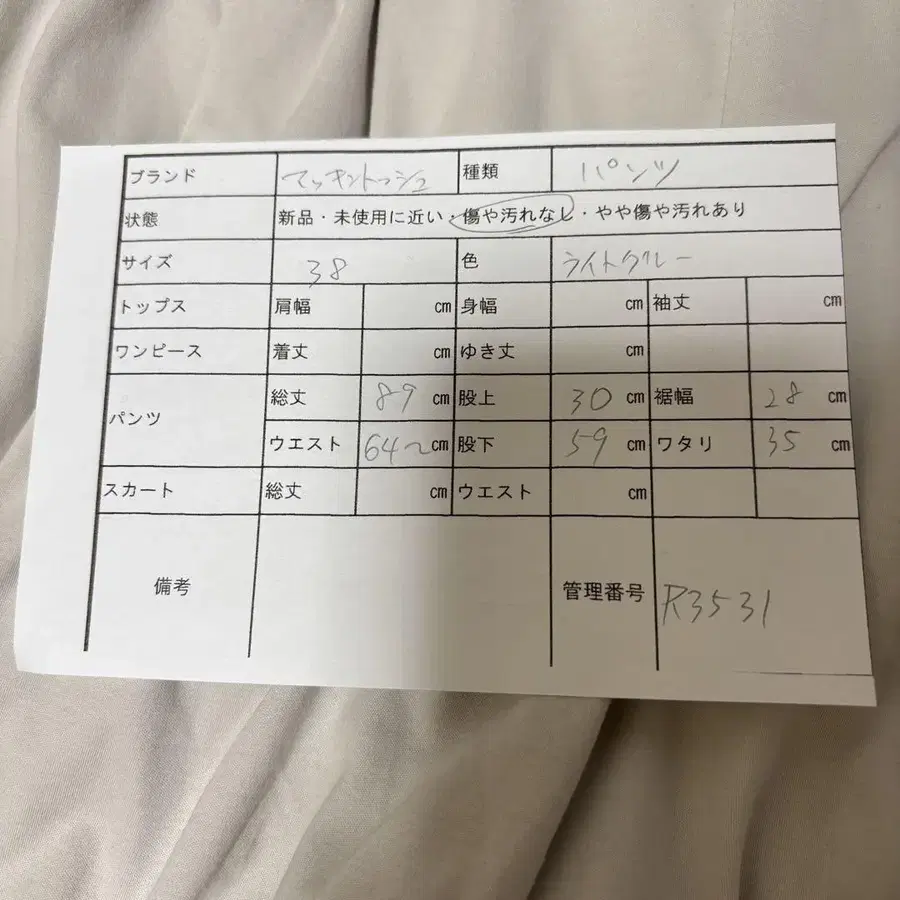 ブランド マッキントッシュ 種類 パンツ
状態 新品・未使用に近い・傷や汚れなし・やや傷や汚れあり
サイズ 38 色 ライトグレー
トップス 肩幅 cm 身幅 cm 袖丈 cm
ワンピース 着丈 cm ゆき丈 cm
パンツ 総丈 89 cm 股上 30 cm 裾幅 28 cm
ウエスト 64〜cm 股下 59 cm ワタリ 35 cm
スカート 総丈 cm ウエスト cm
備考 管理番号 R3531